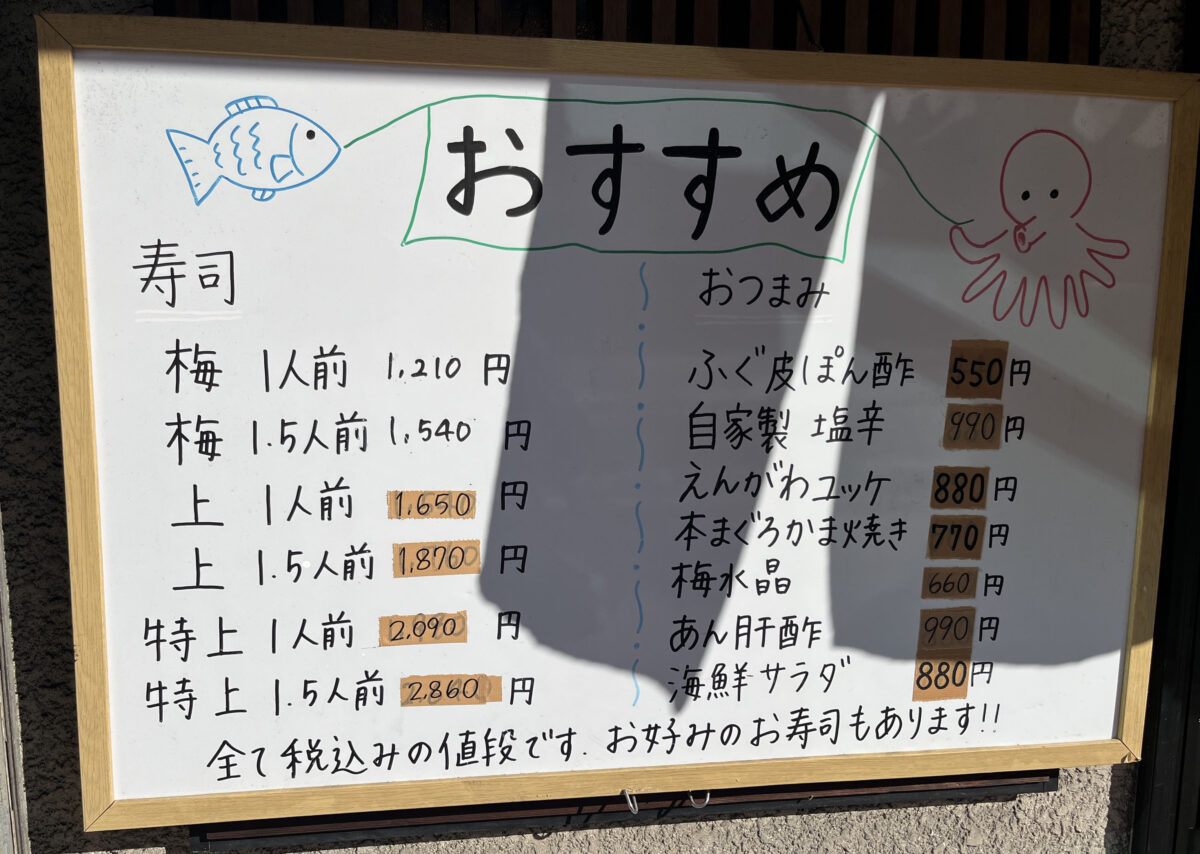 おすすめ
寿司
梅 1人前 1,210 円
梅 1.5人前 1,540 円
上 1人前 1,650 円
上 1.5人前 1,870 円
特上 1人前 2,090 円
特上 1.5人前 2,860 円
おつまみ
ふぐ皮ぽん酢 550円
自家製 塩辛 990円
えんがわユッケ 880円
本まぐろかま焼き 770円
梅水晶 660円
あん肝酢 990円
海鮮サラダ 880円
全て税込みの値段です. お好みのお寿司もあります!!